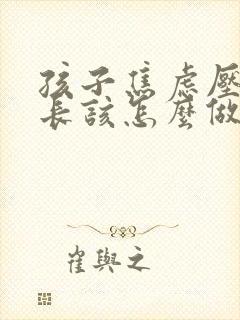 孩子焦虑壓
長該怎麼做
崔與之